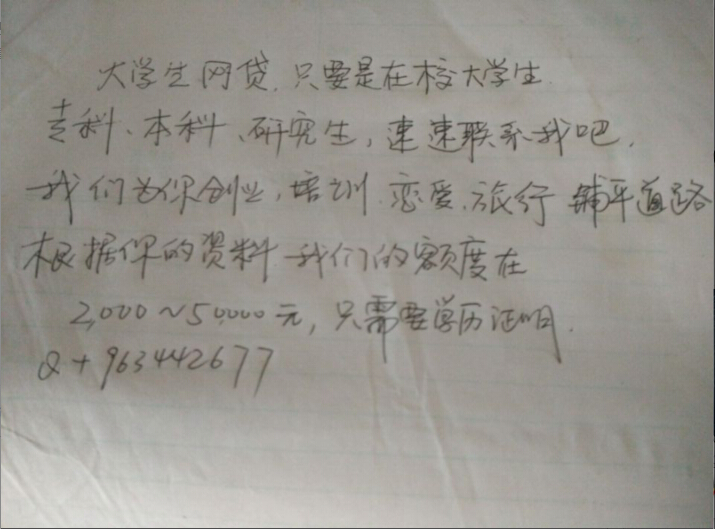 大学生网贷.只要是在校大学生.
专科、本科、研究生,速速联系我吧.
我们为你创业,培训.恋爱.旅行 铺平道路
根据你的资料 我们的额度在
2,000～50,000元,只需要学历证明.
Q+963442677